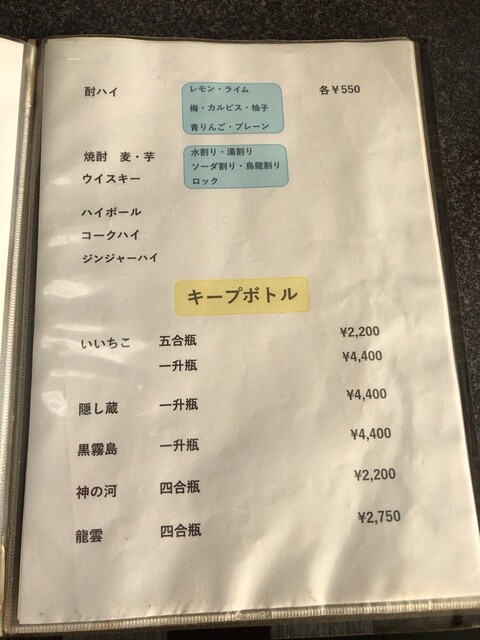 酎ハイ レモン・ライム 各￥550
梅・カルピス・柚子
青りんご・プレーン
焼酎 麦・芋 水割り・湯割り
ウイスキー ソーダ割り・烏龍割り
ロック
ハイボール
コークハイ
ジンジャーハイ
キープボトル
いいちこ 五合瓶 ¥2,200
一升瓶 ¥4,400
隠し蔵 一升瓶 ¥4,400
黒霧島 一升瓶 ¥4,400
神の河 四合瓶 ¥2,200
龍雲 四合瓶 ¥2,750